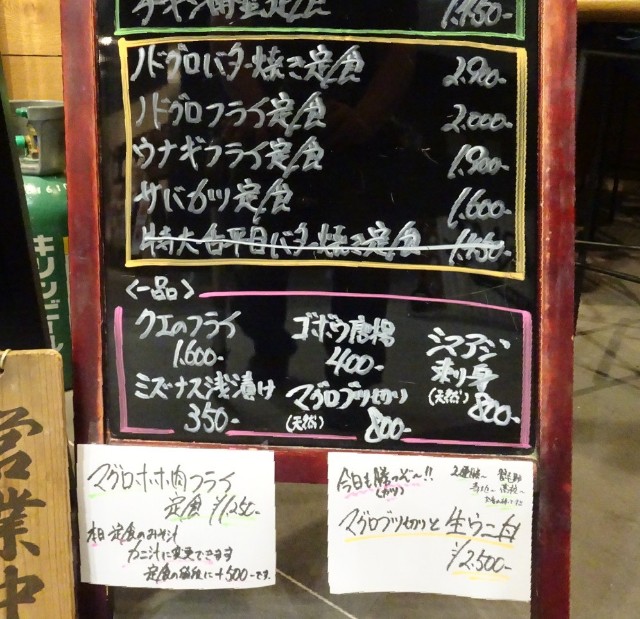 1,450-
ノドグロバター焼き定食 2,900-
ノドグロフライ定食 2,000-
ウナギフライ定食 1,900-
サバカツ定食 1,600-
特大舌平目バター焼き定食 1,450-
<一品>
クエのフライ
1,600-
ミズナス浅漬け
350-
ゴボウ唐揚
400-
マグロブツ切り
(天然) 800-
シマアジ
刺り身
(天然) 800-
マグロホホ肉フライ
定食 ¥1,250-
本日 定食のおみそ汁
カニ汁に変更できます
定食の値段に+500-です。
今日も勝つぞ〜!!
(カツ)
マグロブツ切りと生ウニ丼
¥2,500-
キリンビール
営業中